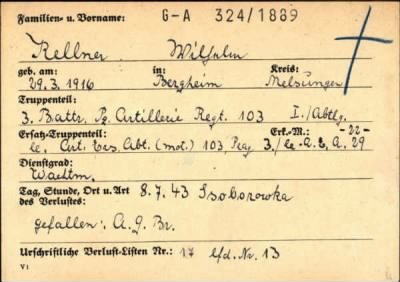 Familien- u. Vorname: G-A 324/1889
Kellner Wilhelm
geb. am: in: Kreis:
29.3.1916 Bergheim Melsungen
Truppenteil:
3. Battr. Pz. Artillerie Regt. 103 I./Abtlg.
Ersatz-Truppenteil: Erk.-M.: -22-
le. Art. Ers. Abt. (mot.) 103, 3./le. A.E.A. 29
Dienstgrad:
Wachtm.
Tag, Stunde, Ort u. Art 8.7.43 Ssoborowka
des Verlustes:
gefallen: A.G. Br.
Urschriftliche Verlust-Listen Nr.: 17 lfd. Nr. 13
V1